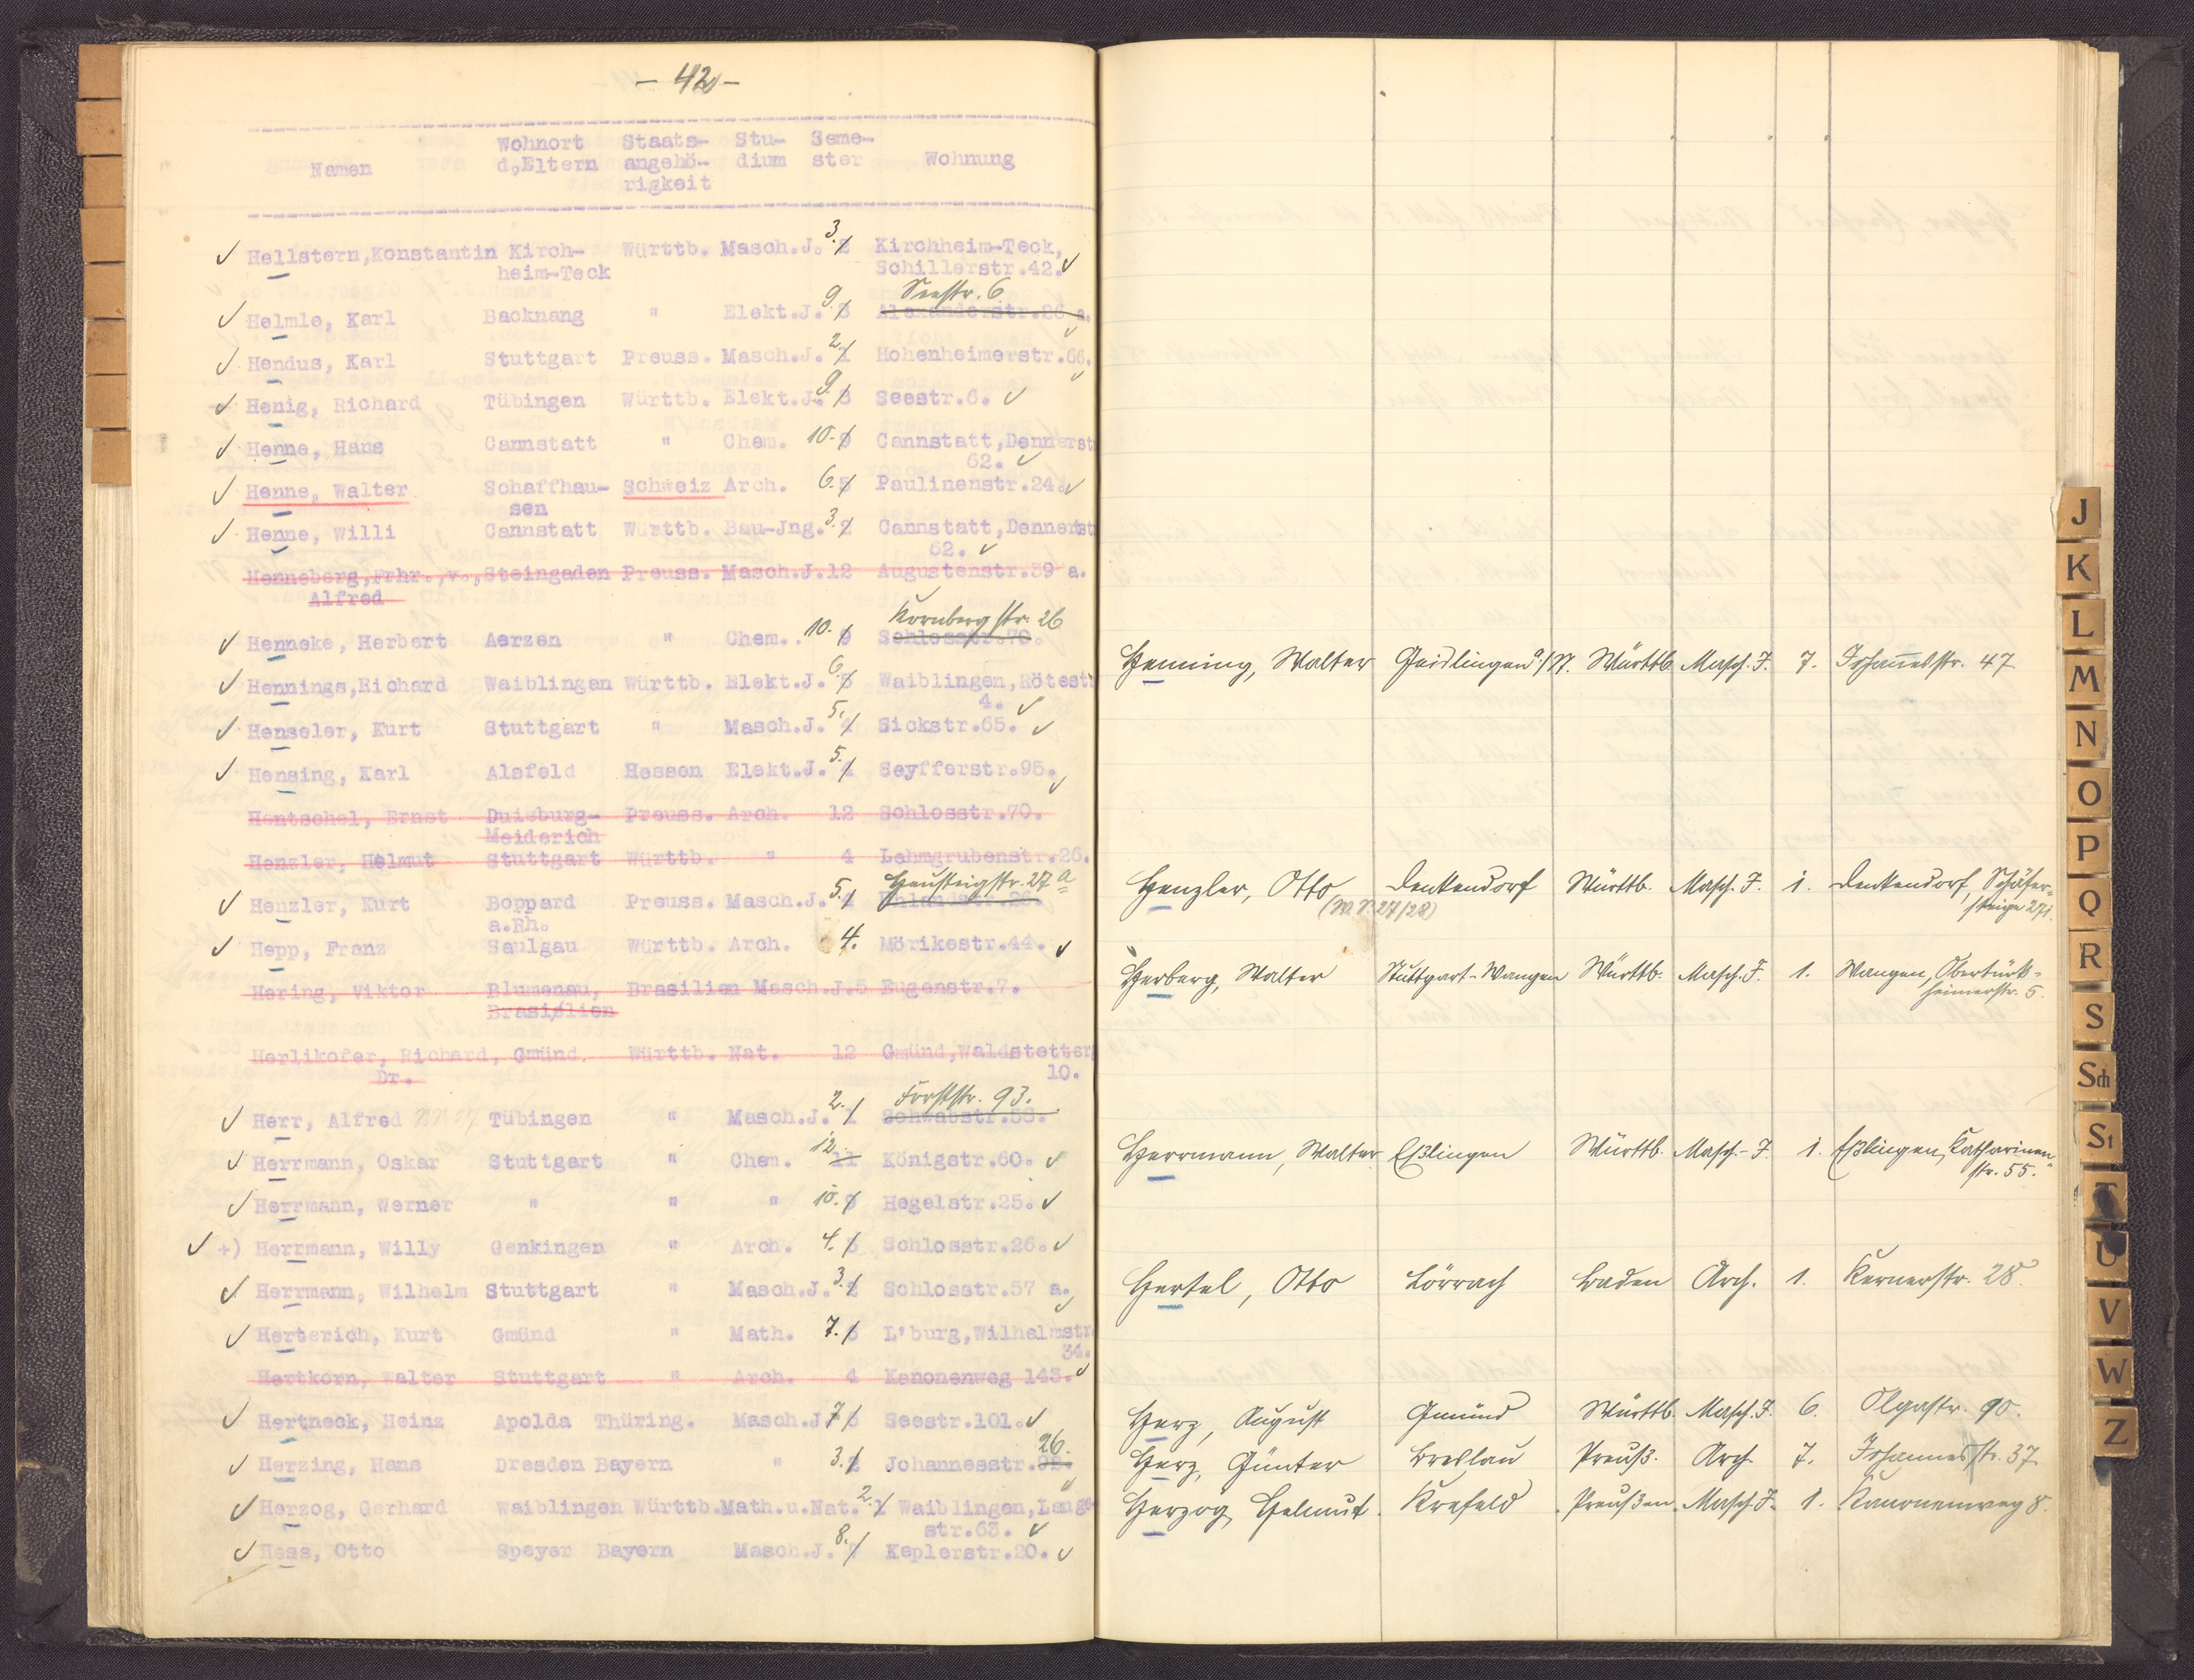 - 42 -
Namen Wohnort d.Eltern Staats-angehö-rigkeit Stu-dium Seme-ster Wohnung
Hellstern,Konstantin Kirch- Württb. Masch.J. 3. 2 Kirchheim-Teck,
heim-Teck Schillerstr.42.
Seestr. 6
Helmle, Karl Backnang " Elekt.J. 9. 8 Alexanderstr.26 a.
Hendus, Karl Stuttgart Preuss. Masch.J. 2. 1 Hohenheimerstr.66.
Henig, Richard Tübingen Württb. Elekt.J. 9. 8 Seestr.6.
Henne, Hans Cannstatt " Chem. 10. 9 Cannstatt,Dennerstr
62.
Henne, Walter Schaffhau- Schweiz Arch. 6. 5 Paulinenstr.24.
sen
Henne, Willi Cannstatt Württb. Bau-Jng. 3. 2 Cannstatt,Dennerstr
62.
Henneberg,Frhr.,v., Steingaden Preuss. Masch.J. 12 Augustenstr.39 a.
Alfred
Kornbergstr. 26
Henneke, Herbert Aerzen " Chem. 10. 9 Schlosstr.70.
Hennings,Richard Waiblingen Württb. Elekt.J. 6. 5 Waiblingen,Rötestr
4.
Henseler, Kurt Stuttgart " Masch.J. 5. 4 Sickstr.65.
Hensing, Karl Alsfeld Hessen Elekt.J. 5. 4 Seyfferstr.95.
Hentschel, Ernst Duisburg- Preuss. Arch. 12 Schlosstr.70.
Meiderich
Henzler, Helmut Stuttgart Württb. " 4 Lehmgrubenstr.26.
Heusteigstr. 27 a
Henzler, Kurt Boppard Preuss. Masch.J. 5. 4
a.Rh.
Hepp, Franz Saulgau Württb. Arch. 4. Mörikestr.44.
Hering, Viktor Blumenau, Brasilien Masch.J. 5 Eugenstr.7.
Brasilien
Herlikofer, Richard, Gmünd. Württb. Nat. 12 Gmünd,Waldstetterg
Dr. 10.
Forststr. 93.
Herr, Alfred Tübingen " Masch.J. 2. 1 Schwabstr.58.
Herrmann, Oskar Stuttgart " Chem. 12 11 Königstr.60.
Herrmann, Werner " " " 10. 9 Hegelstr.25.
+) Herrmann, Willy Genkingen " Arch. 4. 3 Schlosstr.26.
Herrmann, Wilhelm Stuttgart " Masch.J. 3. 2 Schlosstr.57 a.
Herterich, Kurt Gmünd " Math. 7. 6 L'burg,Wilhelmstr
34.
Hertkorn, Walter Stuttgart " Arch. 4 Kanonenweg 143.
Hertneck, Heinz Apolda Thüring. Masch.J 7 6 Seestr.101.
26.
Herzing, Hans Dresden Bayern " 3. 2 Johannesstr.
Herzog, Gerhard Waiblingen Württb. Math.u.Nat. 2. 1 Waiblingen,Lange
str.63.
Hess, Otto Speyer Bayern Masch.J. 8. 7 Keplerstr.20.
Henning, Walter Geislingen a/N. Württb. Masch. J. 7. Johannesstr. 47
Henzler, Otto Denkendorf Württb. Masch. J. 1. Denkendorf, Schäfer-
27/28) steige 271.
Herberg, Walter Stuttgart-Wangen Württb. Masch. J. 1. Wangen, Obertürk-
heimerstr. 5.
Herrmann, Walter Eßlingen Württb. Masch.-J. 1. Eßlingen, Katharinen
str. 55.
Hertel, Otto Lörrach Baden Arch. 1. Kernerstr. 28.
Herz, August Gmünd Württb. Masch. J. 6. Olgastr. 90.
Herz, Günter Breslau Preuß. Arch. 7. Johannesstr. 37
Herzog, Helmut. Krefeld Preußen Masch. J. 1. Kanonenweg 8.
J
K
L
M
N
O
P
Q
R
S
Sch
St
T
U
V
W
Z